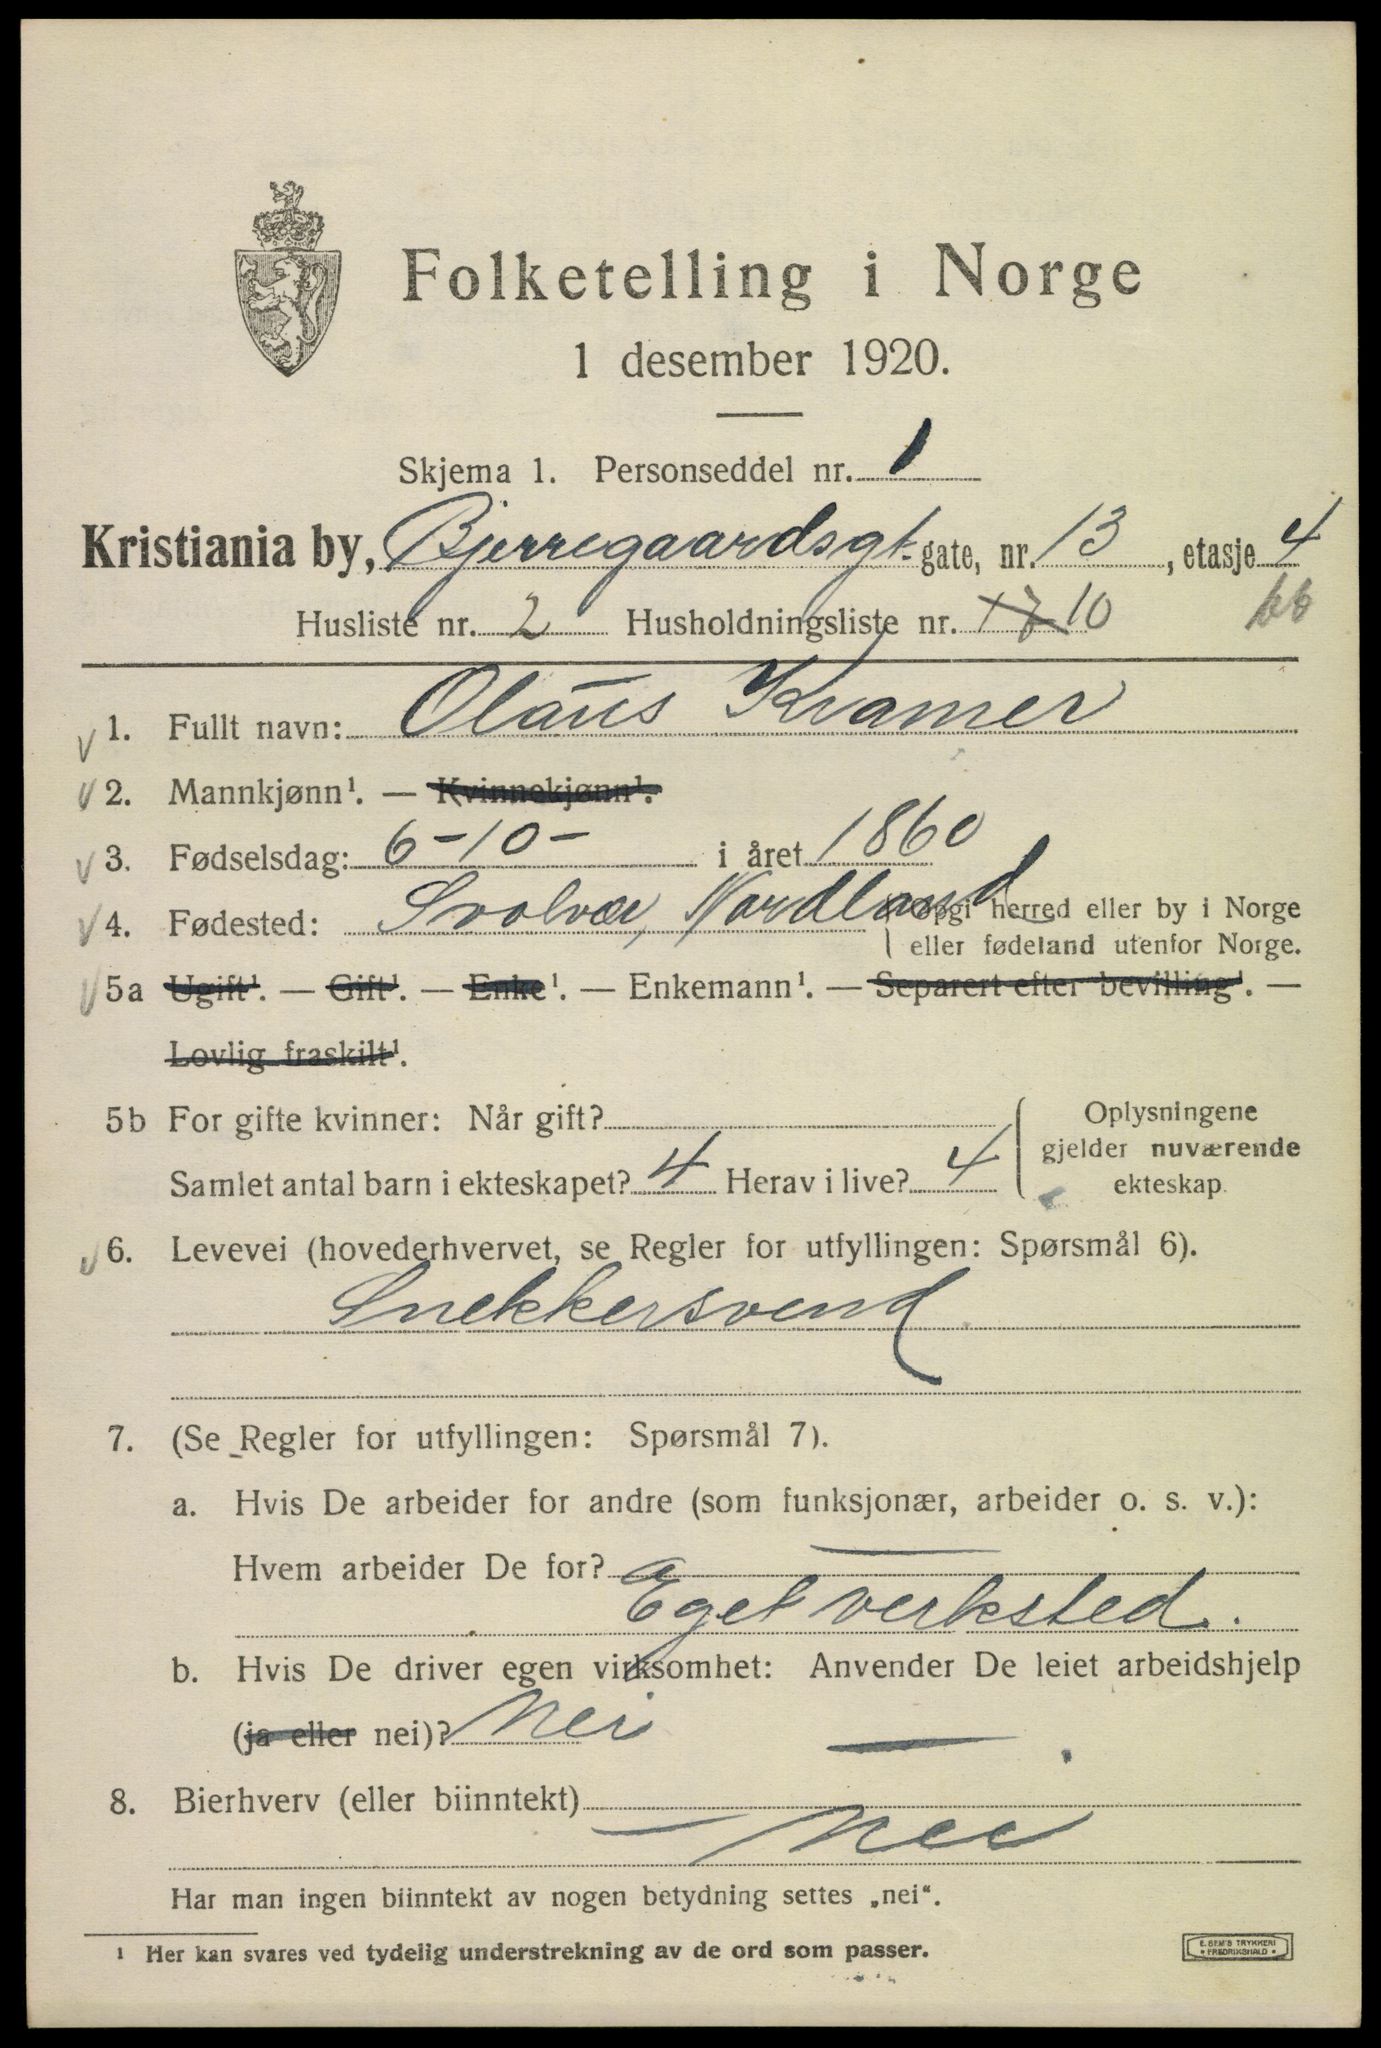 Folketelling i Norge
1 desember 1920.
Skjema 1. Personseddel nr. 1
Kristiania by, Bjerregaardsgt. gate, nr. 13, etasje 4
Husliste nr. 2 Husholdningsliste nr. 17 10 bb
1. Fullt navn: Olaus Kramer
2. Mannkjønn¹. — Kvinnekjønn¹.
3. Fødselsdag: 6-10- i året 1860
4. Fødested: Svolvær, Nordland (Opgi herred eller by i Norge
eller fødeland utenfor Norge.
5a Ugift¹. — Gift¹. — Enke¹. — Enkemann¹. — Separert efter bevilling¹. —
Lovlig fraskilt¹.
5b For gifte kvinner: Når gift? Oplysningene
gjelder nuværende
Samlet antal barn i ekteskapet? 4 Herav i live? 4 ekteskap.
6. Levevei (hovederhvervet, se Regler for utfyllingen: Spørsmål 6).
Snekkersvend
7. (Se Regler for utfyllingen: Spørsmål 7).
a. Hvis De arbeider for andre (som funksjonær, arbeider o. s. v.):
Hvem arbeider De for? —
Eget verksted.
b. Hvis De driver egen virksomhet: Anvender De leiet arbeidshjelp
(ja eller nei)? Nei —
8. Bierhverv (eller biinntekt)
— Nei
Har man ingen biinntekt av nogen betydning settes „nei“.
¹ Her kan svares ved tydelig understrekning av de ord som passer.
E. SEM'S TRYKKERI
FREDRIKSHALD